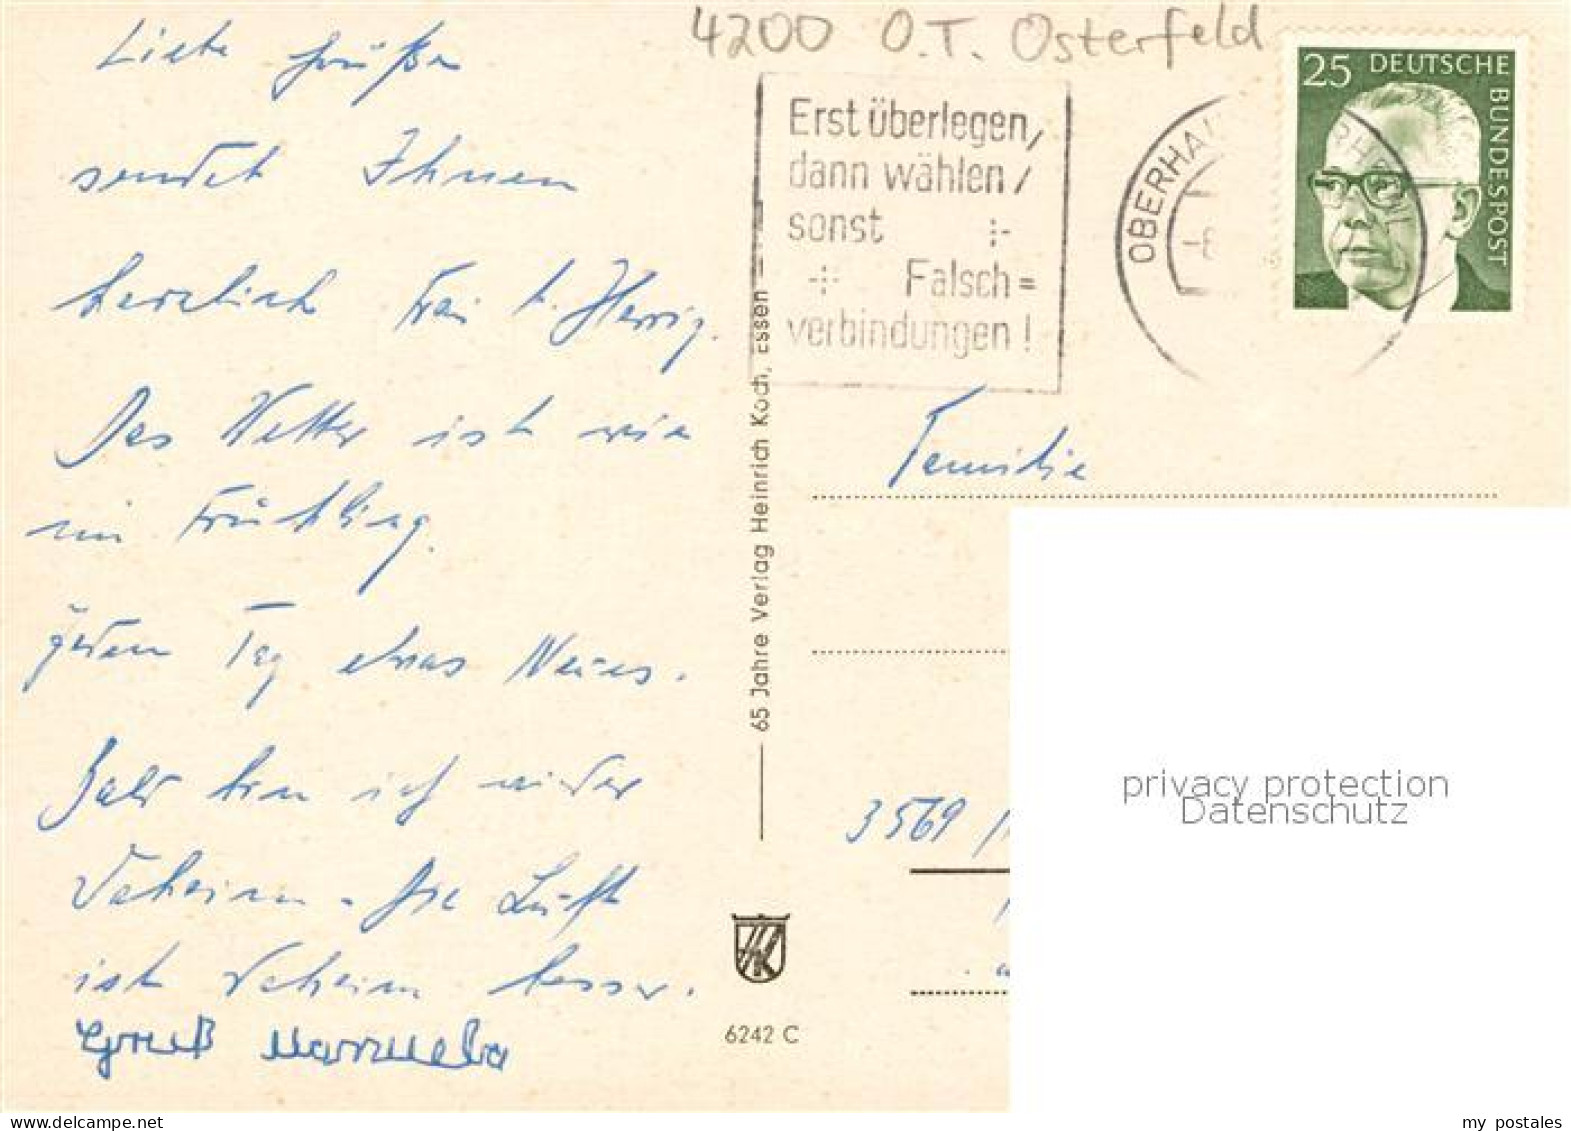 Liebe Grüße
sendet Ihnen
herzlich Frau H. Herrig.
Das Wetter ist wie
im Frühling.
Jeden Tag etwas Neues.
Bald bin ich wieder
daheim. Die Luft
ist daheim besser.
Gruß Manuela
4200 O.T. Osterfeld
Erst überlegen,
dann wählen,
sonst
Falsch=
verbindungen!
OBERHAU
25 DEUTSCHE
BUNDESPOST
65 Jahre Verlag Heinrich Koch, Essen
Familie
3569
6242 C
privacy protection
Datenschutz
my postales